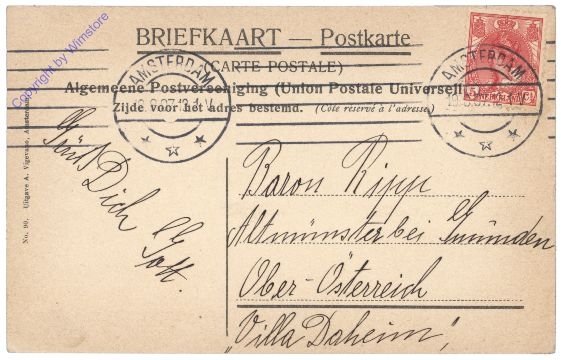 BRIEFKAART — Postkarte
(CARTE POSTALE)
Algemeene Postvereeniging (Union Postale Universelle)
Zijde voor het adres bestemd. (Côte réservé à l'adresse)
AMSTERDAM
AMSTERDAM
5 C
Copyright by Wimstore
No. 90. Uitgave A. Vigevano, Amsterdam
Grüß
Dich
Gott.
Baron Ripp
Altmünster bei Gmünden
Ober-Österreich
"Villa Daheim",